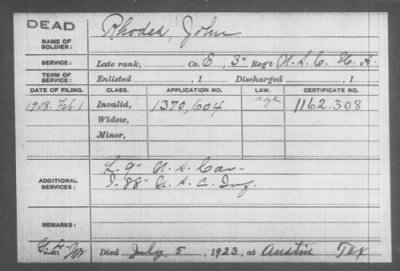 DEAD
Rhodes, John
NAME OF SOLDIER:
SERVICE: Late rank, Co. E 3d Reg't U. S. C. H. A.
TERM OF SERVICE: Enlisted , 1 Discharged , 1
DATE OF FILING. CLASS. APPLICATION NO. LAW. CERTIFICATE NO.
1908. Feb 1 Invalid, 1370,604 age 1162.308
Widow,
Minor,
ADDITIONAL SERVICES:
L. 9" U. S. Cav.
I. 88" U. S. C. Inf.
REMARKS:
Died July 5, 1923, at Austin Tex